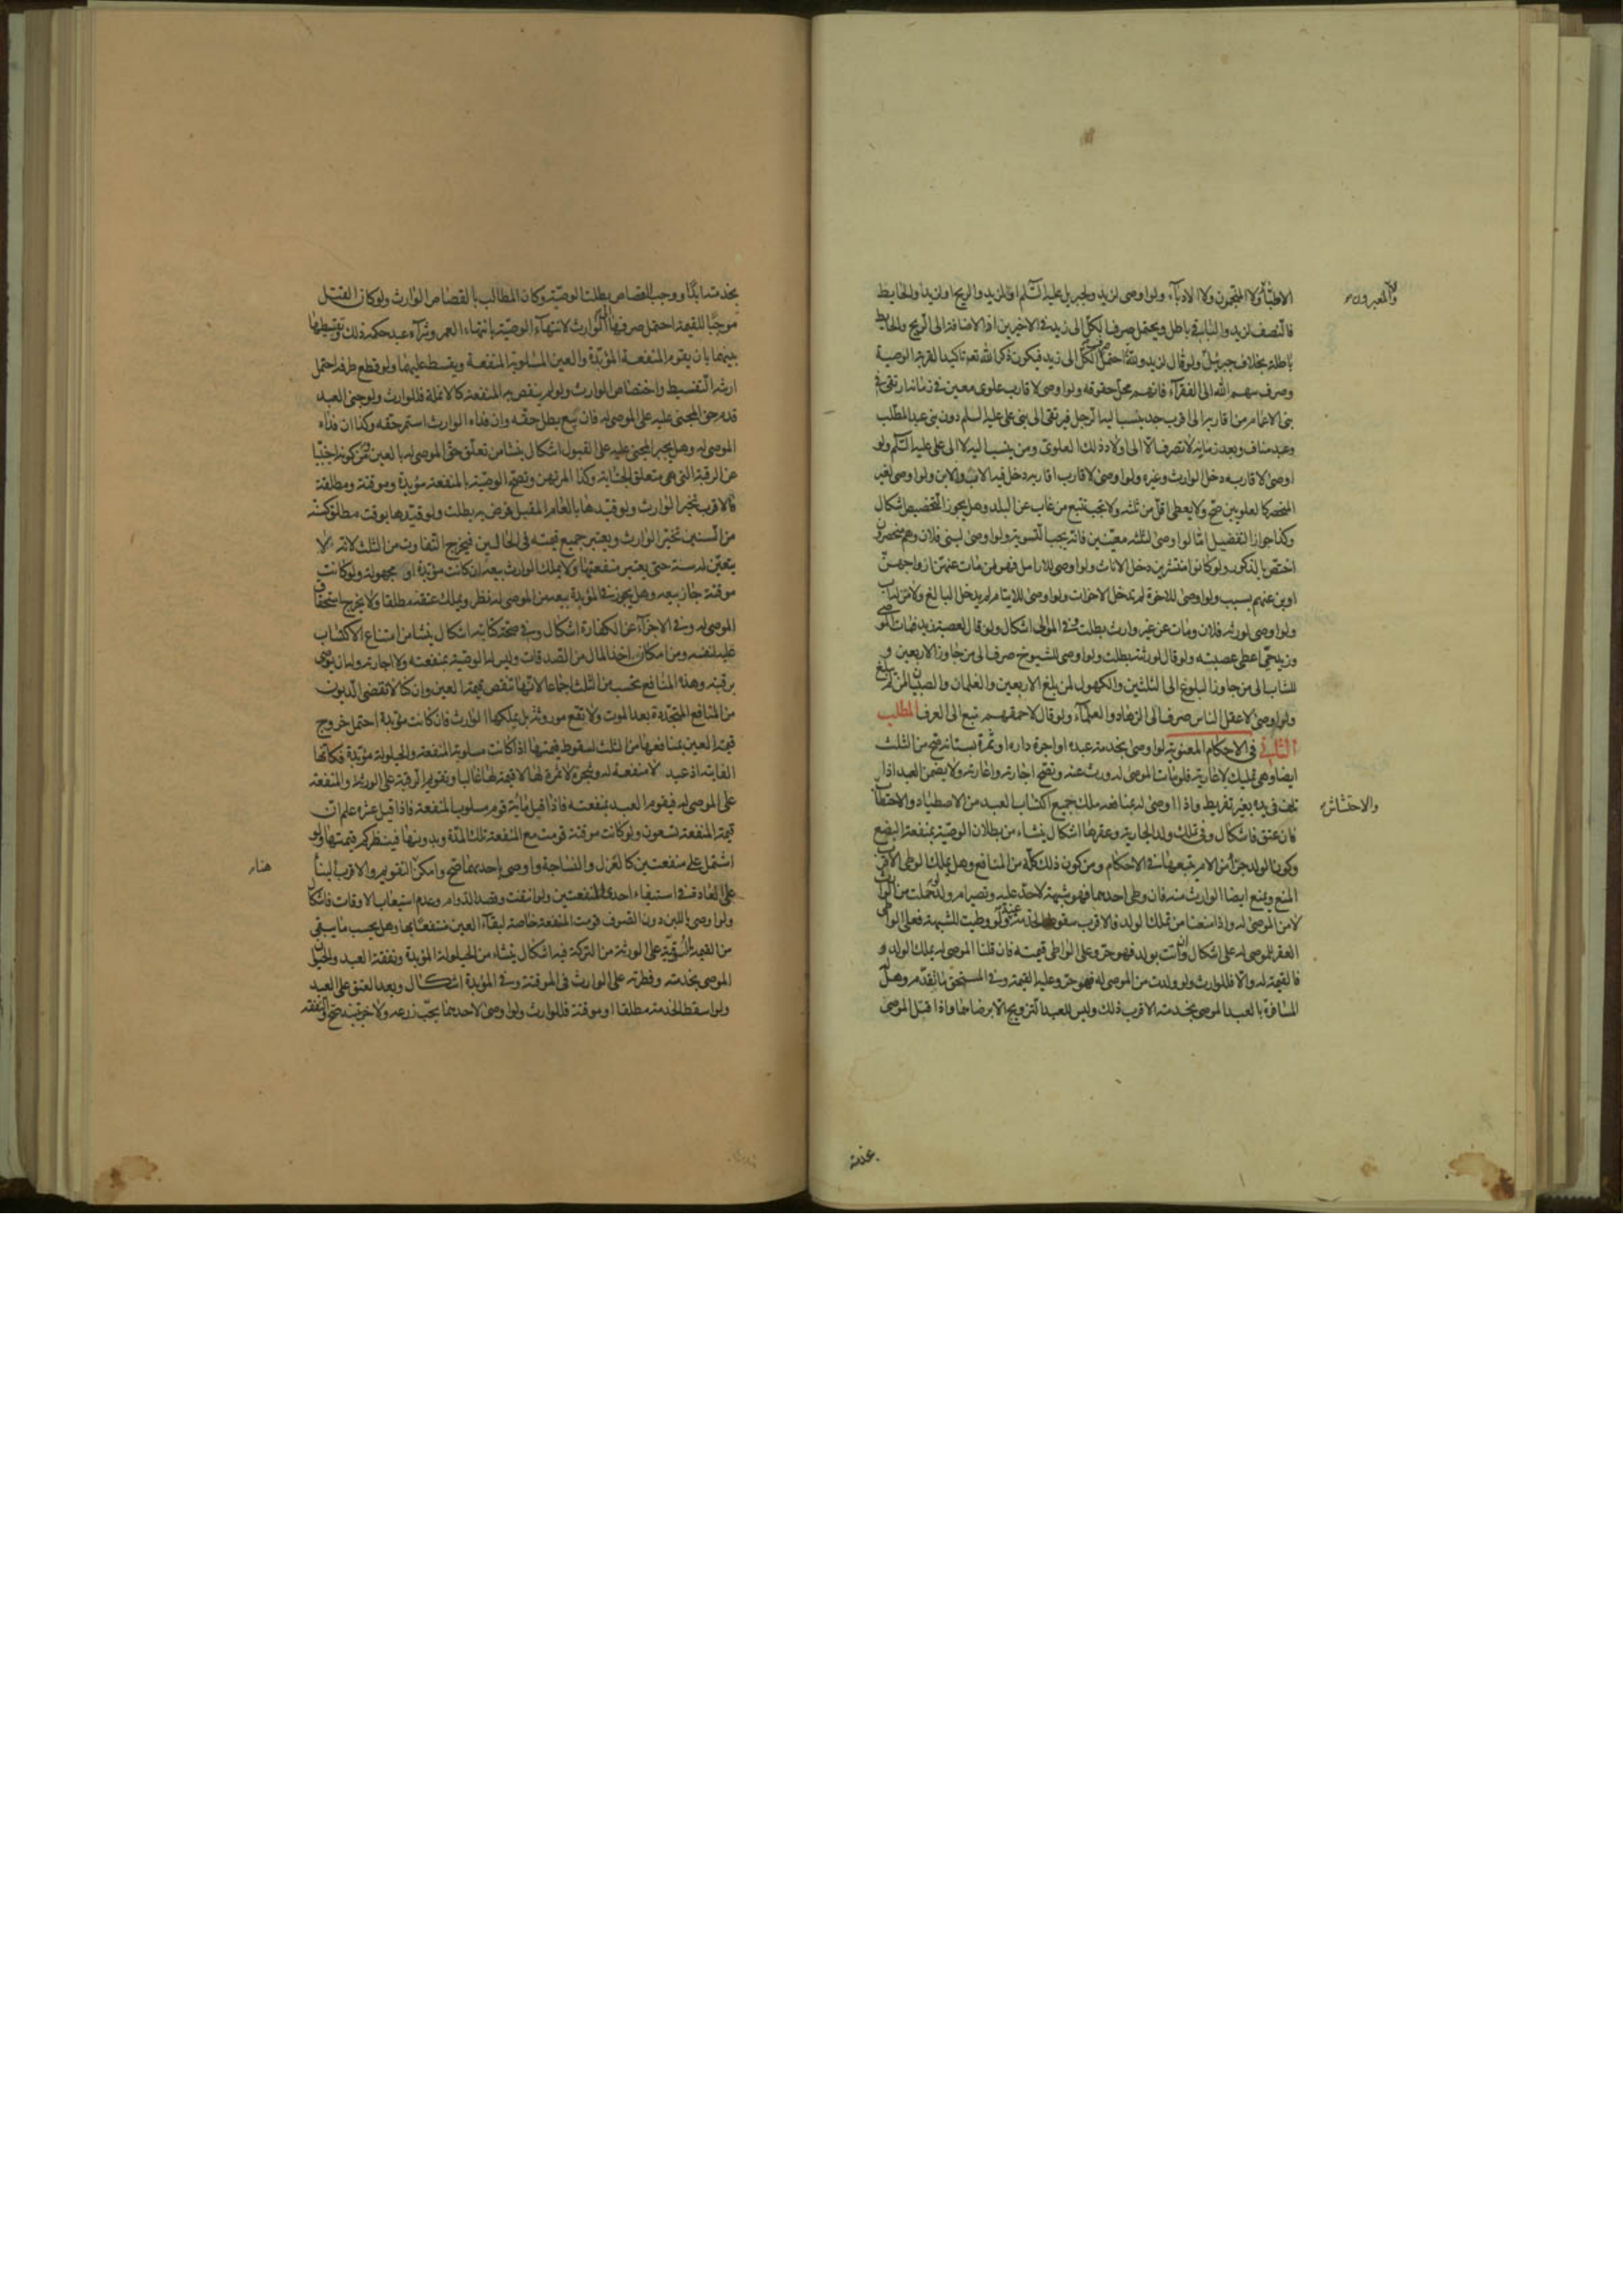 الاطباء ولا المنجمون ولا الادباء ولو اوصى لزيد ولجبريل عليه السلم او لزيد والريح او لزيد والحايط
ولا المعبرون
فالنصف لزيد والباقي باطل ويحتمل صرف الكل الى زيد في الاخيرين اذ الاضافة الى الريح والحايط
باطلة بخلاف جبرئيل ولو قال لزيد ولله احتمل صرف الكل الى زيد فيكون ذكر الله تعه تاكيدا لقربة الوصية
وصرف سهم الله الى الفقراء فانهم محل حقوقه ولو اوصى لاقارب علوى معين في زمانه ارتقى في
بنى الاعمام من اقاربه الى اقرب جد ينسب اليه الرجل فيرتقى الى بنى على عليه السلم دون بنى عبد المطلب
وعبد مناف وبعد زمانه لا تصرف الا الى اولاد ذلك العلوى ومن ينسب اليه لا الى على عليه السلم ولو
اوصى لاقاربه دخل الوارث وغيره ولو اوصى لاقارب اقاربه دخل فيه الاب والابن ولو اوصى لغير
المنحصر كالعلويين صح ولا يعطى اقل من ثلثه ولا يجب تتبع من غاب عن البلد وهل يجوز التخصيص اشكال
وكذا جواز التفضيل اما لو اوصى لثلثه معينين فانه يجب التسوية ولو اوصى لبنى فلان وهم منحصرون
اختص بالذكور ولو كانوا منتشرين دخل الاناث ولو اوصى للارامل فهو لمن مات عنهن ازواجهن
او بن عنهم بسبب ولو اوصى للاخوة لم يدخل الاخوات ولو اوصى للايتام لم يدخل البالغ ولا من له اب
ولو اوصى لورثه فلان ومات عن غير وارث بطلت وفي الموالى اشكال ولو قال لعصبة زيد فمات الموصى
وزيد حي اعطى عصبته ولو قال لورثته بطلت ولو اوصى للشيوخ صرف الى من جاوز الاربعين و
للشاب الى من جاوز البلوغ الى الثلثين والكهول لمن بلغ الاربعين والغلمان والصبيان لمن لم يبلغ
ولو اوصى لاعقل الناس صرف الى الزهاد والعلماء ولو قال لاحمقهم تبع الى العرف المطلب
الثاني في الاحكام المعنوية لو اوصى بخدمة عبده او اجرة داره او ثمرة بستانه صح من الثلث
ايضا وهى تمليك لا عارية فلو مات الموصى له ورث عنه وتصح اجارته واعارته ولا يضمن العبد اذا
تلف في يده بغير تفريط واذا اوصى له بمنافعه ملك جميع اكتساب العبد من الاصطياد والاحتطاب
والاحتشاش
فان عتق فاشكال وفى تملك ولد الجارية وعقرها اشكال ينشاء من بطلان الوصية بمنفعة البضع
وكون الولد جزأ من الام يتبعها في الاحكام ومن كون ذلك كله من المنافع وهل يملك الوطى الاقرب
المنع ويمنع ايضا الوارث منه فان وطى احدهما فهو شبهة لا حد عليه وتصير ام ولد لو حملت من الوارث
لا من الموصى له واذا منعنا من تملك الولد فالاقرب سقوط الخدمة عنه ولو وطيت للشبهة فعلى الواطى
العقر للموصى له على اشكال وان اتت بولد فهو حر وعلى الواطى قيمته فان قلنا الموصى له يملك الولد و
فالقيمة له والا فللوارث ولو ولدت من الموصى له فهو حر وعليه القيمة وفي المستحق ما تقدم وهل له
المسافرة بالعبد الموصى بخدمته الاقرب ذلك وليس للعبد التزويج الا برضاهما واذا قتل الموصى
بخدمته ابدا ووجب القصاص بطلت الوصية وكان المطالب بالقصاص الوارث ولو كان القتل
موجبا للقيمة احتمل صرفها الى الوارث لانتهاء الوصية بانتهاء العمر وشراء عبد حكمه ذلك وتقسيطها
بينهما بان يقوم المنفعة المؤبدة والعين المسلوبة المنفعة ويقسط عليهما ولو قطع طرفه احتمل
ارشه التقسيط واختصاص الوارث ولو لم ينقص به المنفعة كالانملة فللوارث ولو جنى العبد
قدم حق المجنى عليه على الموصى له فان بيع بطل حقه وان فداه الوارث استمر حقه وكذا ان فداه
الموصى له وهل يجبر المجنى عليه على القبول اشكال ينشا من تعلق حق الموصى له بالعين ومن كونه اجنبيا
عن الرقبة التى هى متعلق الجناية وكذا المرتهن وتصح الوصية بالمنفعة مؤبدة وموقتة ومطلقة
فالاقرب تخير الوارث ولو قيدها بالعام المقبل فمرض به بطلت ولو قيدها بوقت مطلق كسنة
من السنين تخير الوارث ويعتبر جميع قيمته فى الحالين فيخرج التفاوت من الثلث لانه لا
يتعين له سنة حتى يعتبر منفعتها ولا يملك الوارث بيعه ان كانت مؤبدة او مجهولة ولو كانت
موقتة جاز بيعه وهل يجوز في المؤبدة بيعه من الموصى له نظر ويملك عتقه مطلقا ولا يخرج استحقاق
الموصى له وفى الاجزاء عن الكفارة اشكال وفى صحة كتابته اشكال ينشا من امتناع الاكتساب
عليه لنفسه ومن امكان اخذ المال من الصدقات وليس له الوصية بمنفعته ولا اجارته وله ان يوصى
برقبته وهذه المنافع تحسب من الثلث اجماعا لانها تنقص قيمة العين وان كان لا تقضى الديون
من المنافع المتجددة بعد الموت ولا تقع موروثة بل يملكها الوارث فان كانت مؤبدة احتمل خروج
قيمة العين بمنافعها من الثلث لسقوط قيمتها اذا كانت مسلوبة المنفعة والحيلولة مؤبدة فكانها
الفايته اذ عبد لا منفعة له وشجرة لا ثمرة لها لا قيمة لها غالبا وتقويم الرقبة على الورثة والمنفعة
على الموصى له فيقوم العبد بمنفعته فاذا قيل مائة قوم مسلوب المنفعة فاذا قيل عشره علم ان
قيمة المنفعة تسعون ولو كانت موقتة قومت مع المنفعة تلك المدة وبدونها فينظر كم قيمتها ولو
اشتمل على منفعتين كالغزل والنساجة واوصى باحديهما صح وامكن التقويم والاقرب البناء
هنا
على العادة في استيفاء احدى المنفعتين ولو انتفت وقصد الدوام وعدم استيعاب الاوقات فاشكال
ولو اوصى باللبن دون الصوف قومت المنفعة خاصة لبقاء العين منتفعا بها وهل يحسب ما يبقى
من القيمة السوقية على الورثة من التركة فيه اشكال ينشاء من الحيلولة المؤبدة ونفقة العبد والحيوان
الموصى بخدمته وفطرته على الوارث فى الموقتة وفى المؤبدة اشكال وبعد العتق على العبد
ولو اسقط الخدمة مطلقا او موقتة فللوارث ولو اوصى لاحدهما بحب زرعه ولاخر بتبنه صح والنفقة